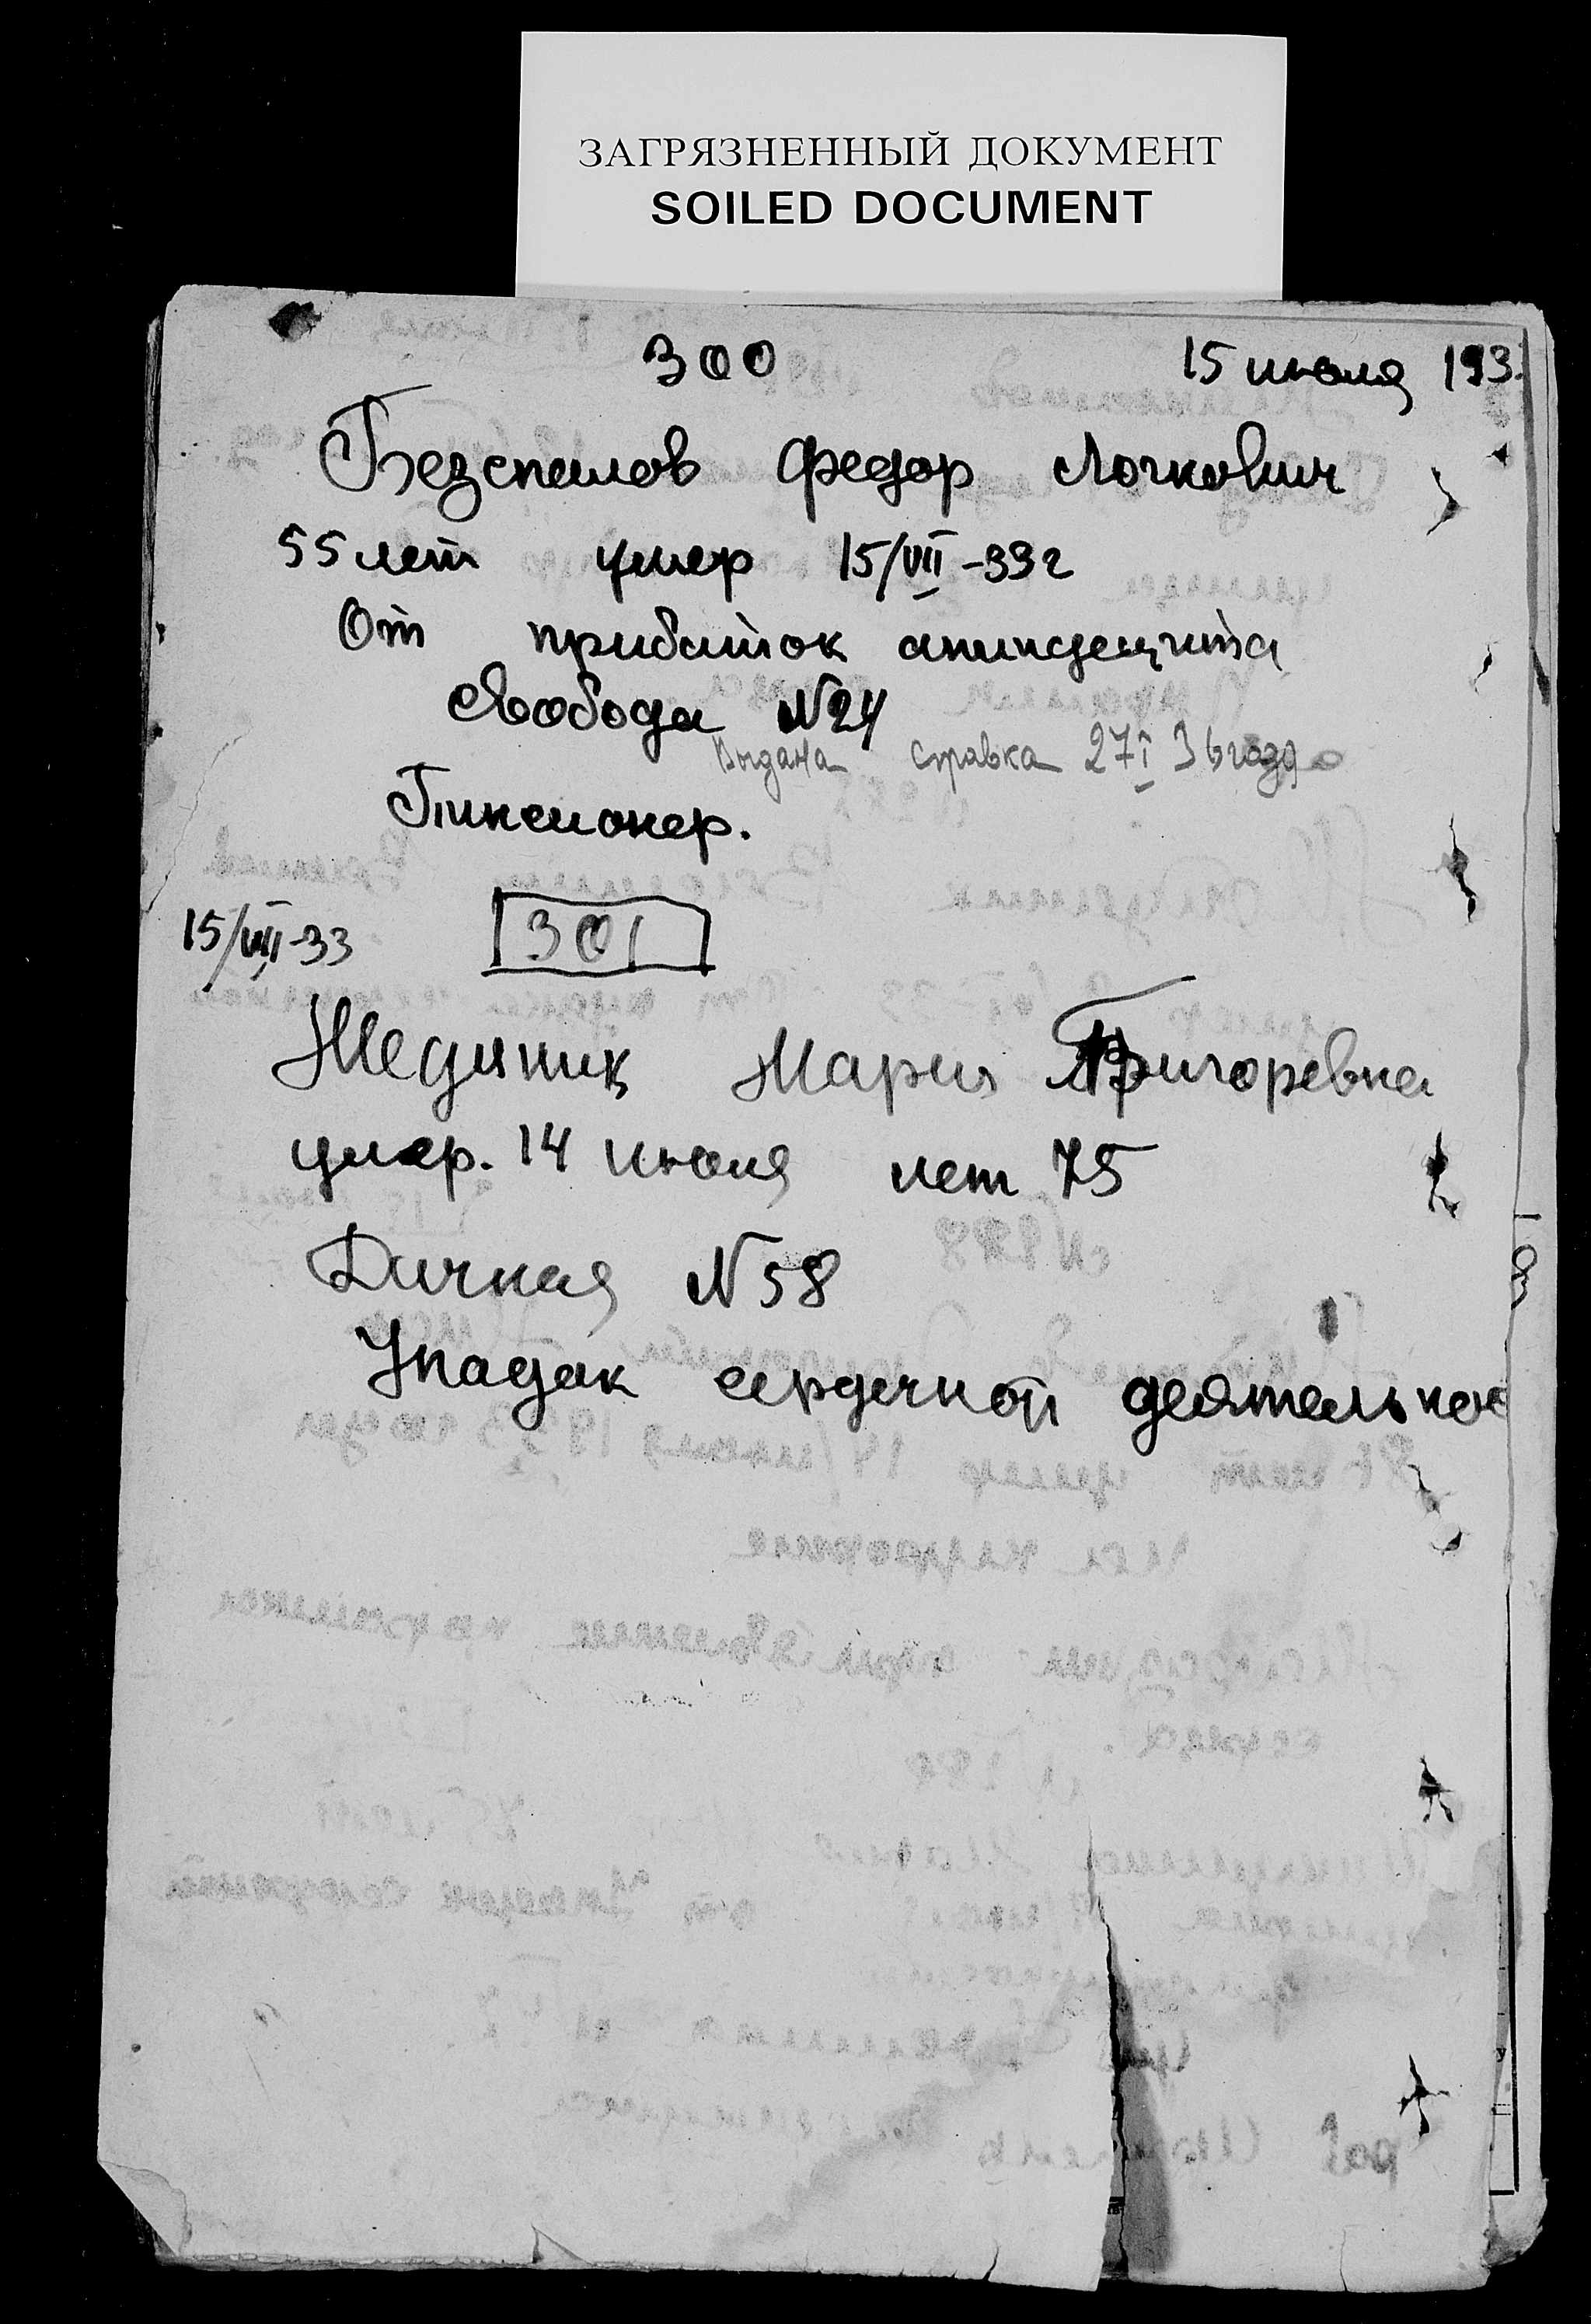 ЗАГРЯЗНЕННЫЙ ДОКУМЕНТ
SOILED DOCUMENT
300 15 июля 193
Безспалов Федор
55 лет умер 15/VII-33г
От апиндецита
Свобода №24
Выдана справка 27 I 36 года
Пинсионер.
15/VII-33 301
Мария Григоревна
умер. 14 июля лет 75
Дачная №58
Упадак сердечной деятельнос